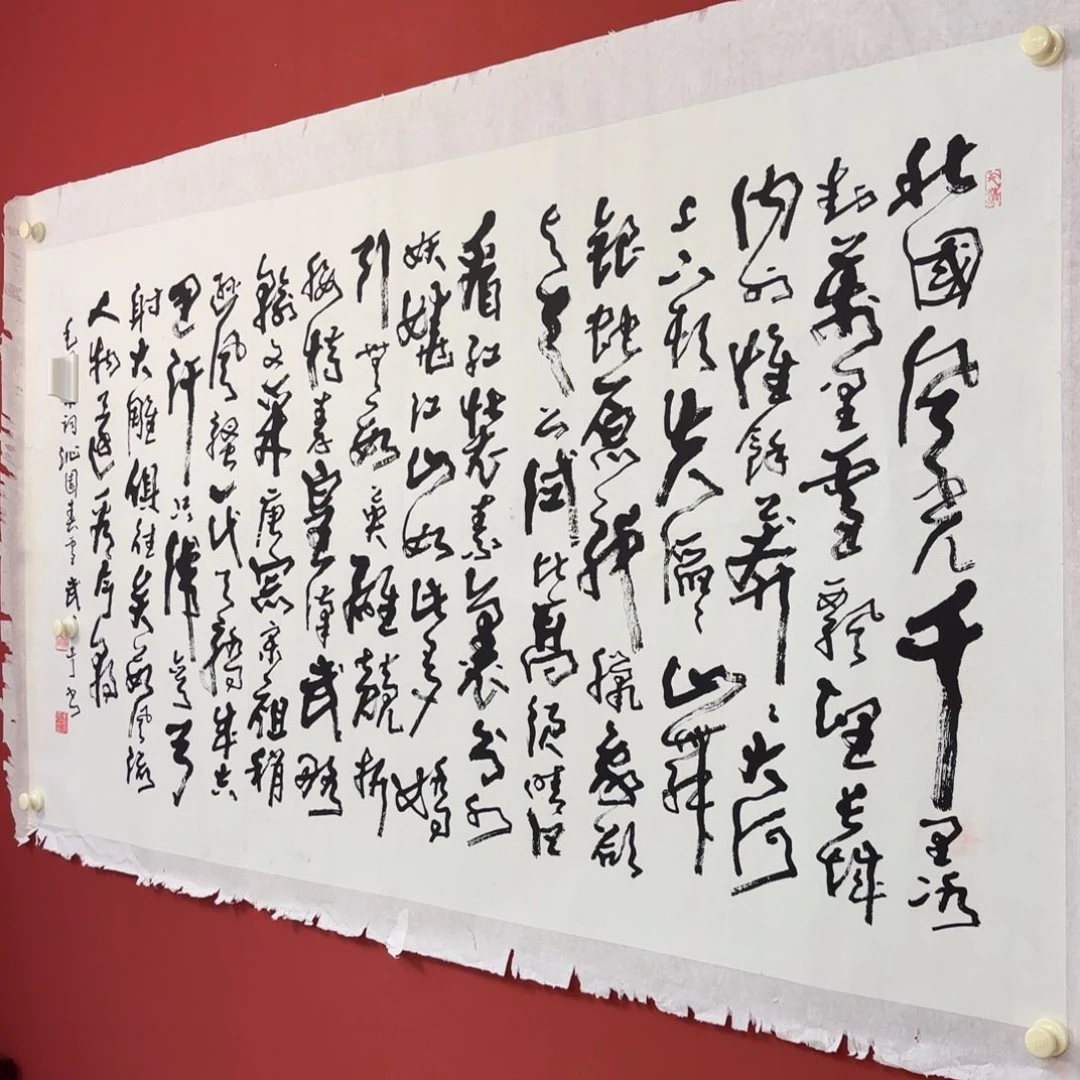 北國風光千里冰
封萬里雪飄望長城
內外惟餘莽〻大河
上下頓失滔〻山舞
銀蛇原馳臘象欲
與天公試比高須晴日
看紅裝素裹分外
妖嬈江山如此多嬌
引無數英雄競折
腰惜秦皇漢武略
輸文采唐宗宋祖稍
遜風騷一代天驕成吉
思汗只識彎弓
射大雕俱往矣數風流
人物還看今朝
毛 詞沁園春雪 武 書